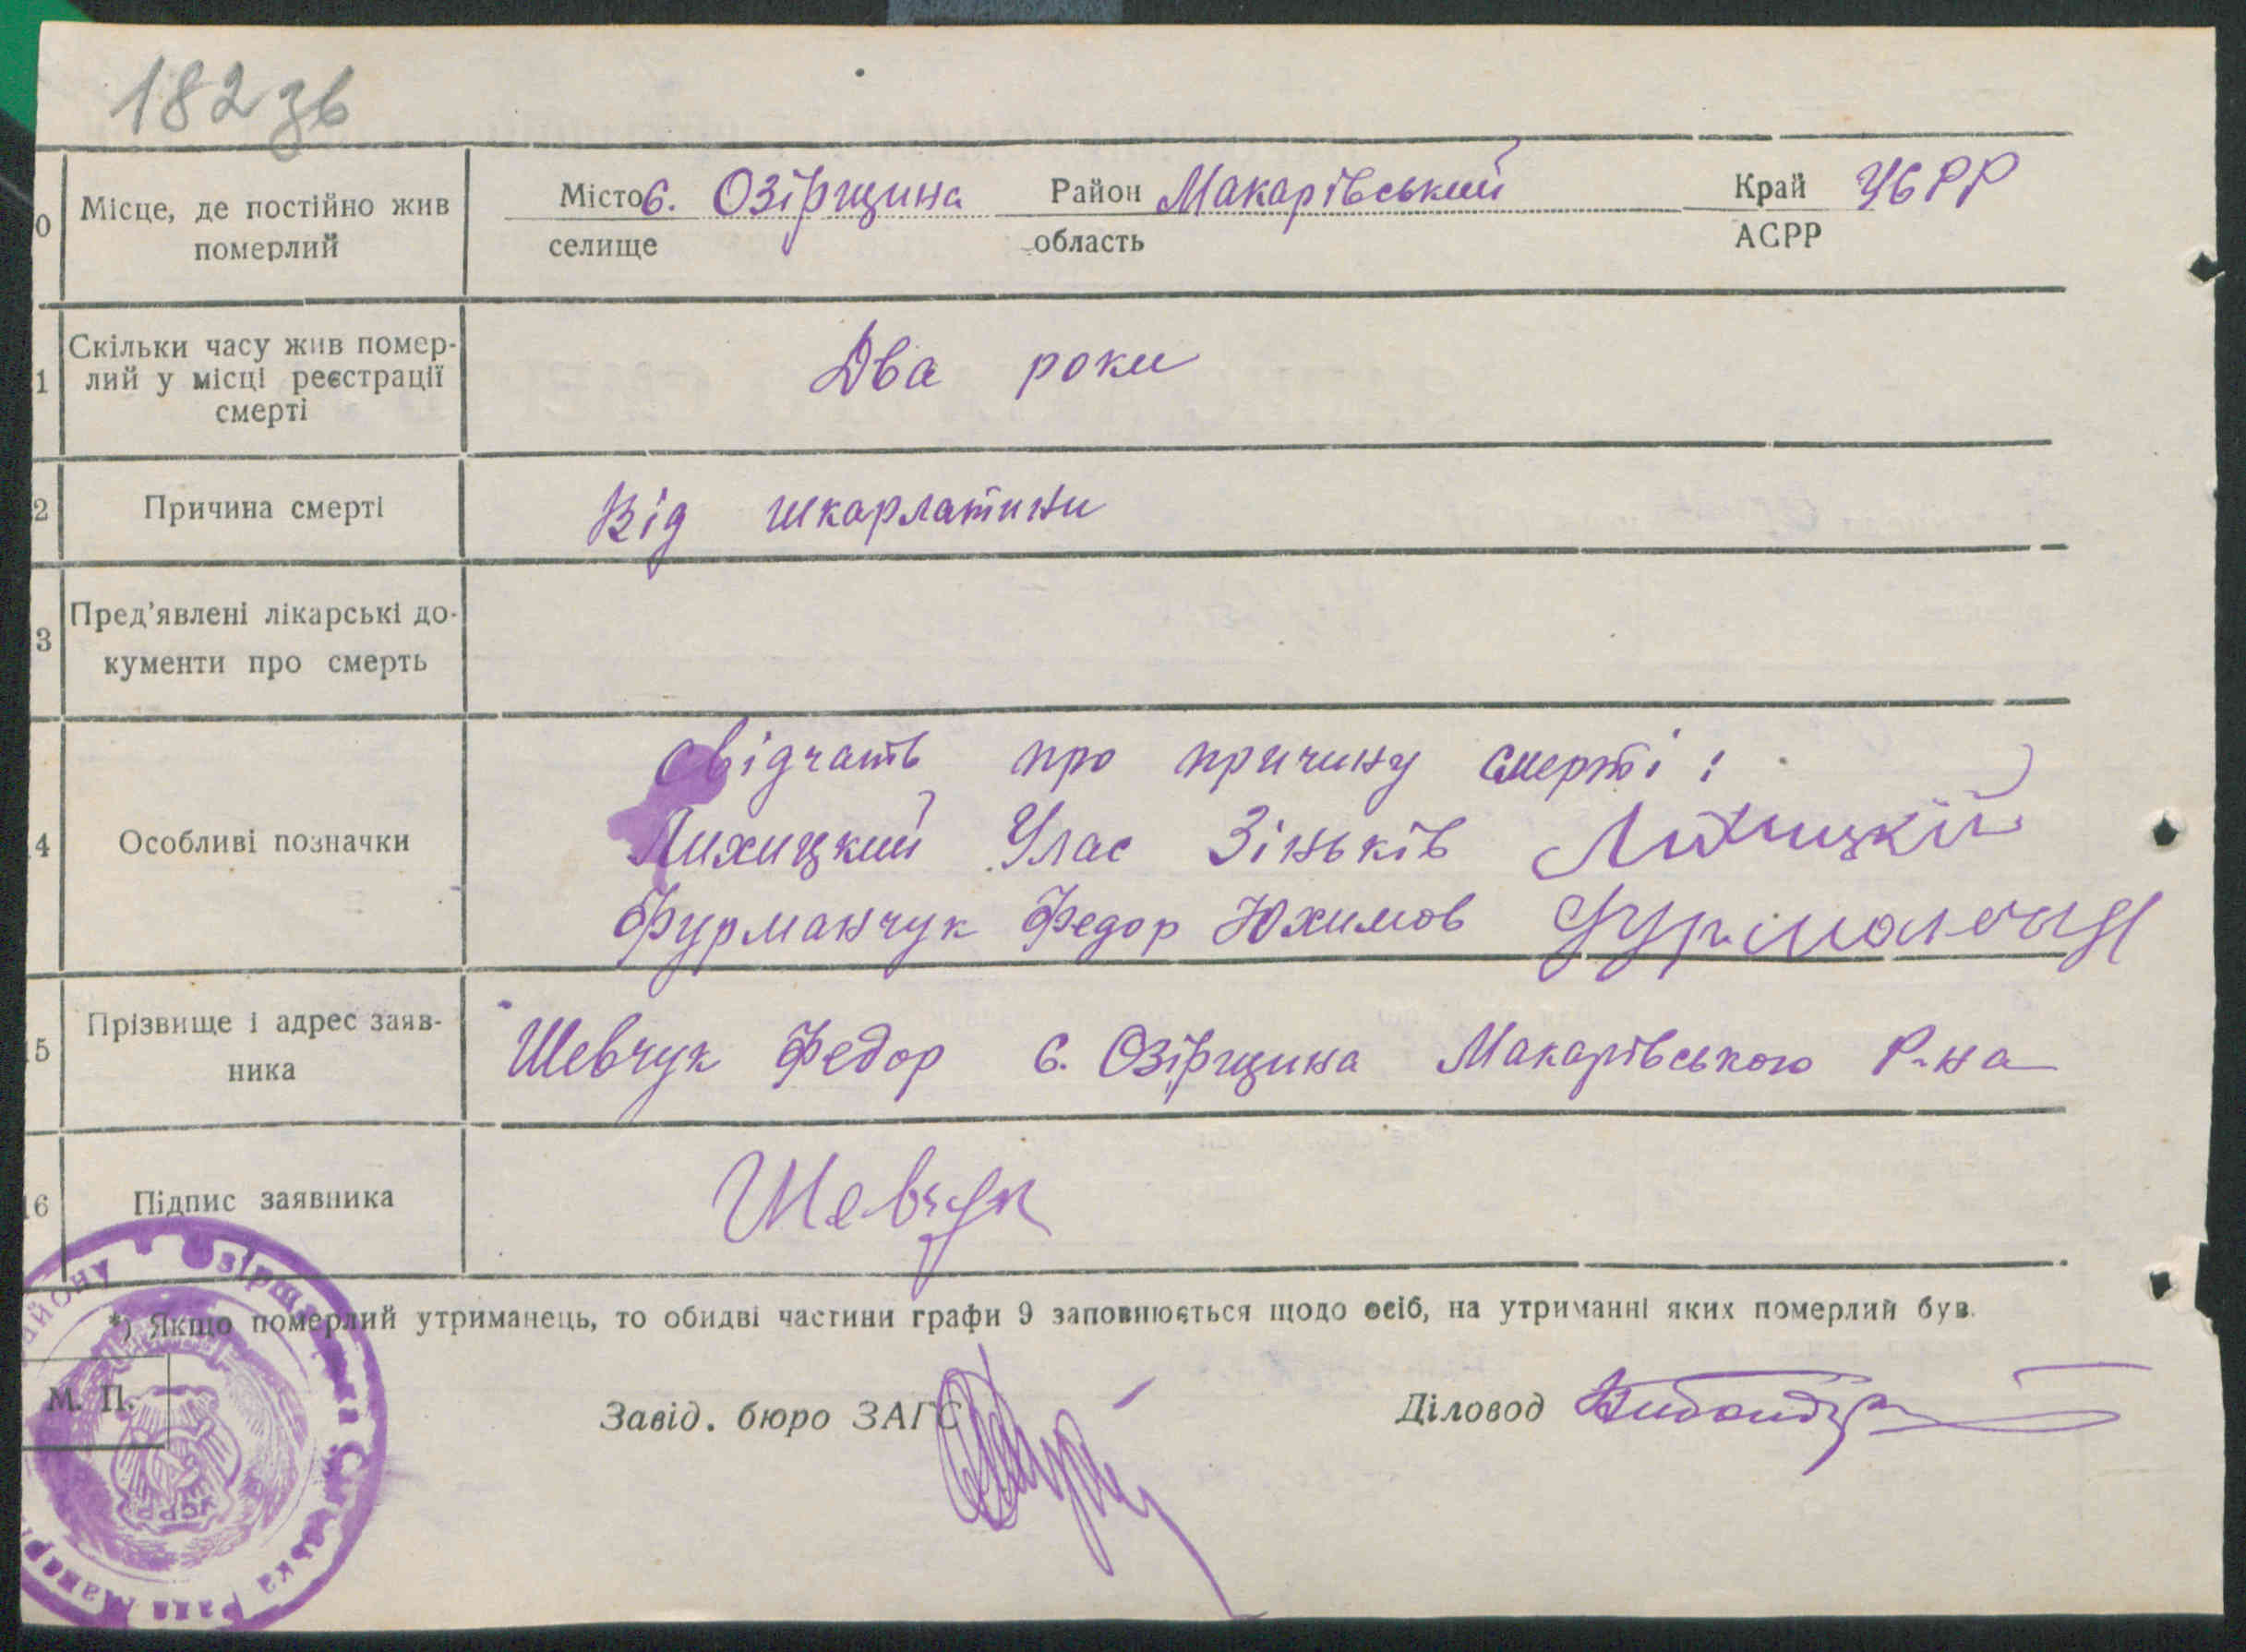 182 зв
0 Місце, де постійно жив померлий
Місто с. Озірщина Район Макарівський Край УСРР
селище область АСРР
1 Скільки часу жив помер-
лий у місці реєстрації
смерті
Два роки
2 Причина смерті
Від шкарлатини
3 Пред'явлені лікарські до-
кументи про смерть
4 Особливі позначки
Свідчать про причину смерті:
Лихицкий Улас Зіньків Лихицкий
Фурманчук Федор Юхимов
5 Прізвище і адрес заяв-
ника
Шевчук Федор с. Озірщина Макарівського Р-на
6 Підпис заявника
Шевчук
*) Якщо померлий утриманець, то обидві частини графи 9 заповнюється щодо осіб, на утриманні яких померлий був.
М. П.
Завід. бюро ЗАГС
Діловод